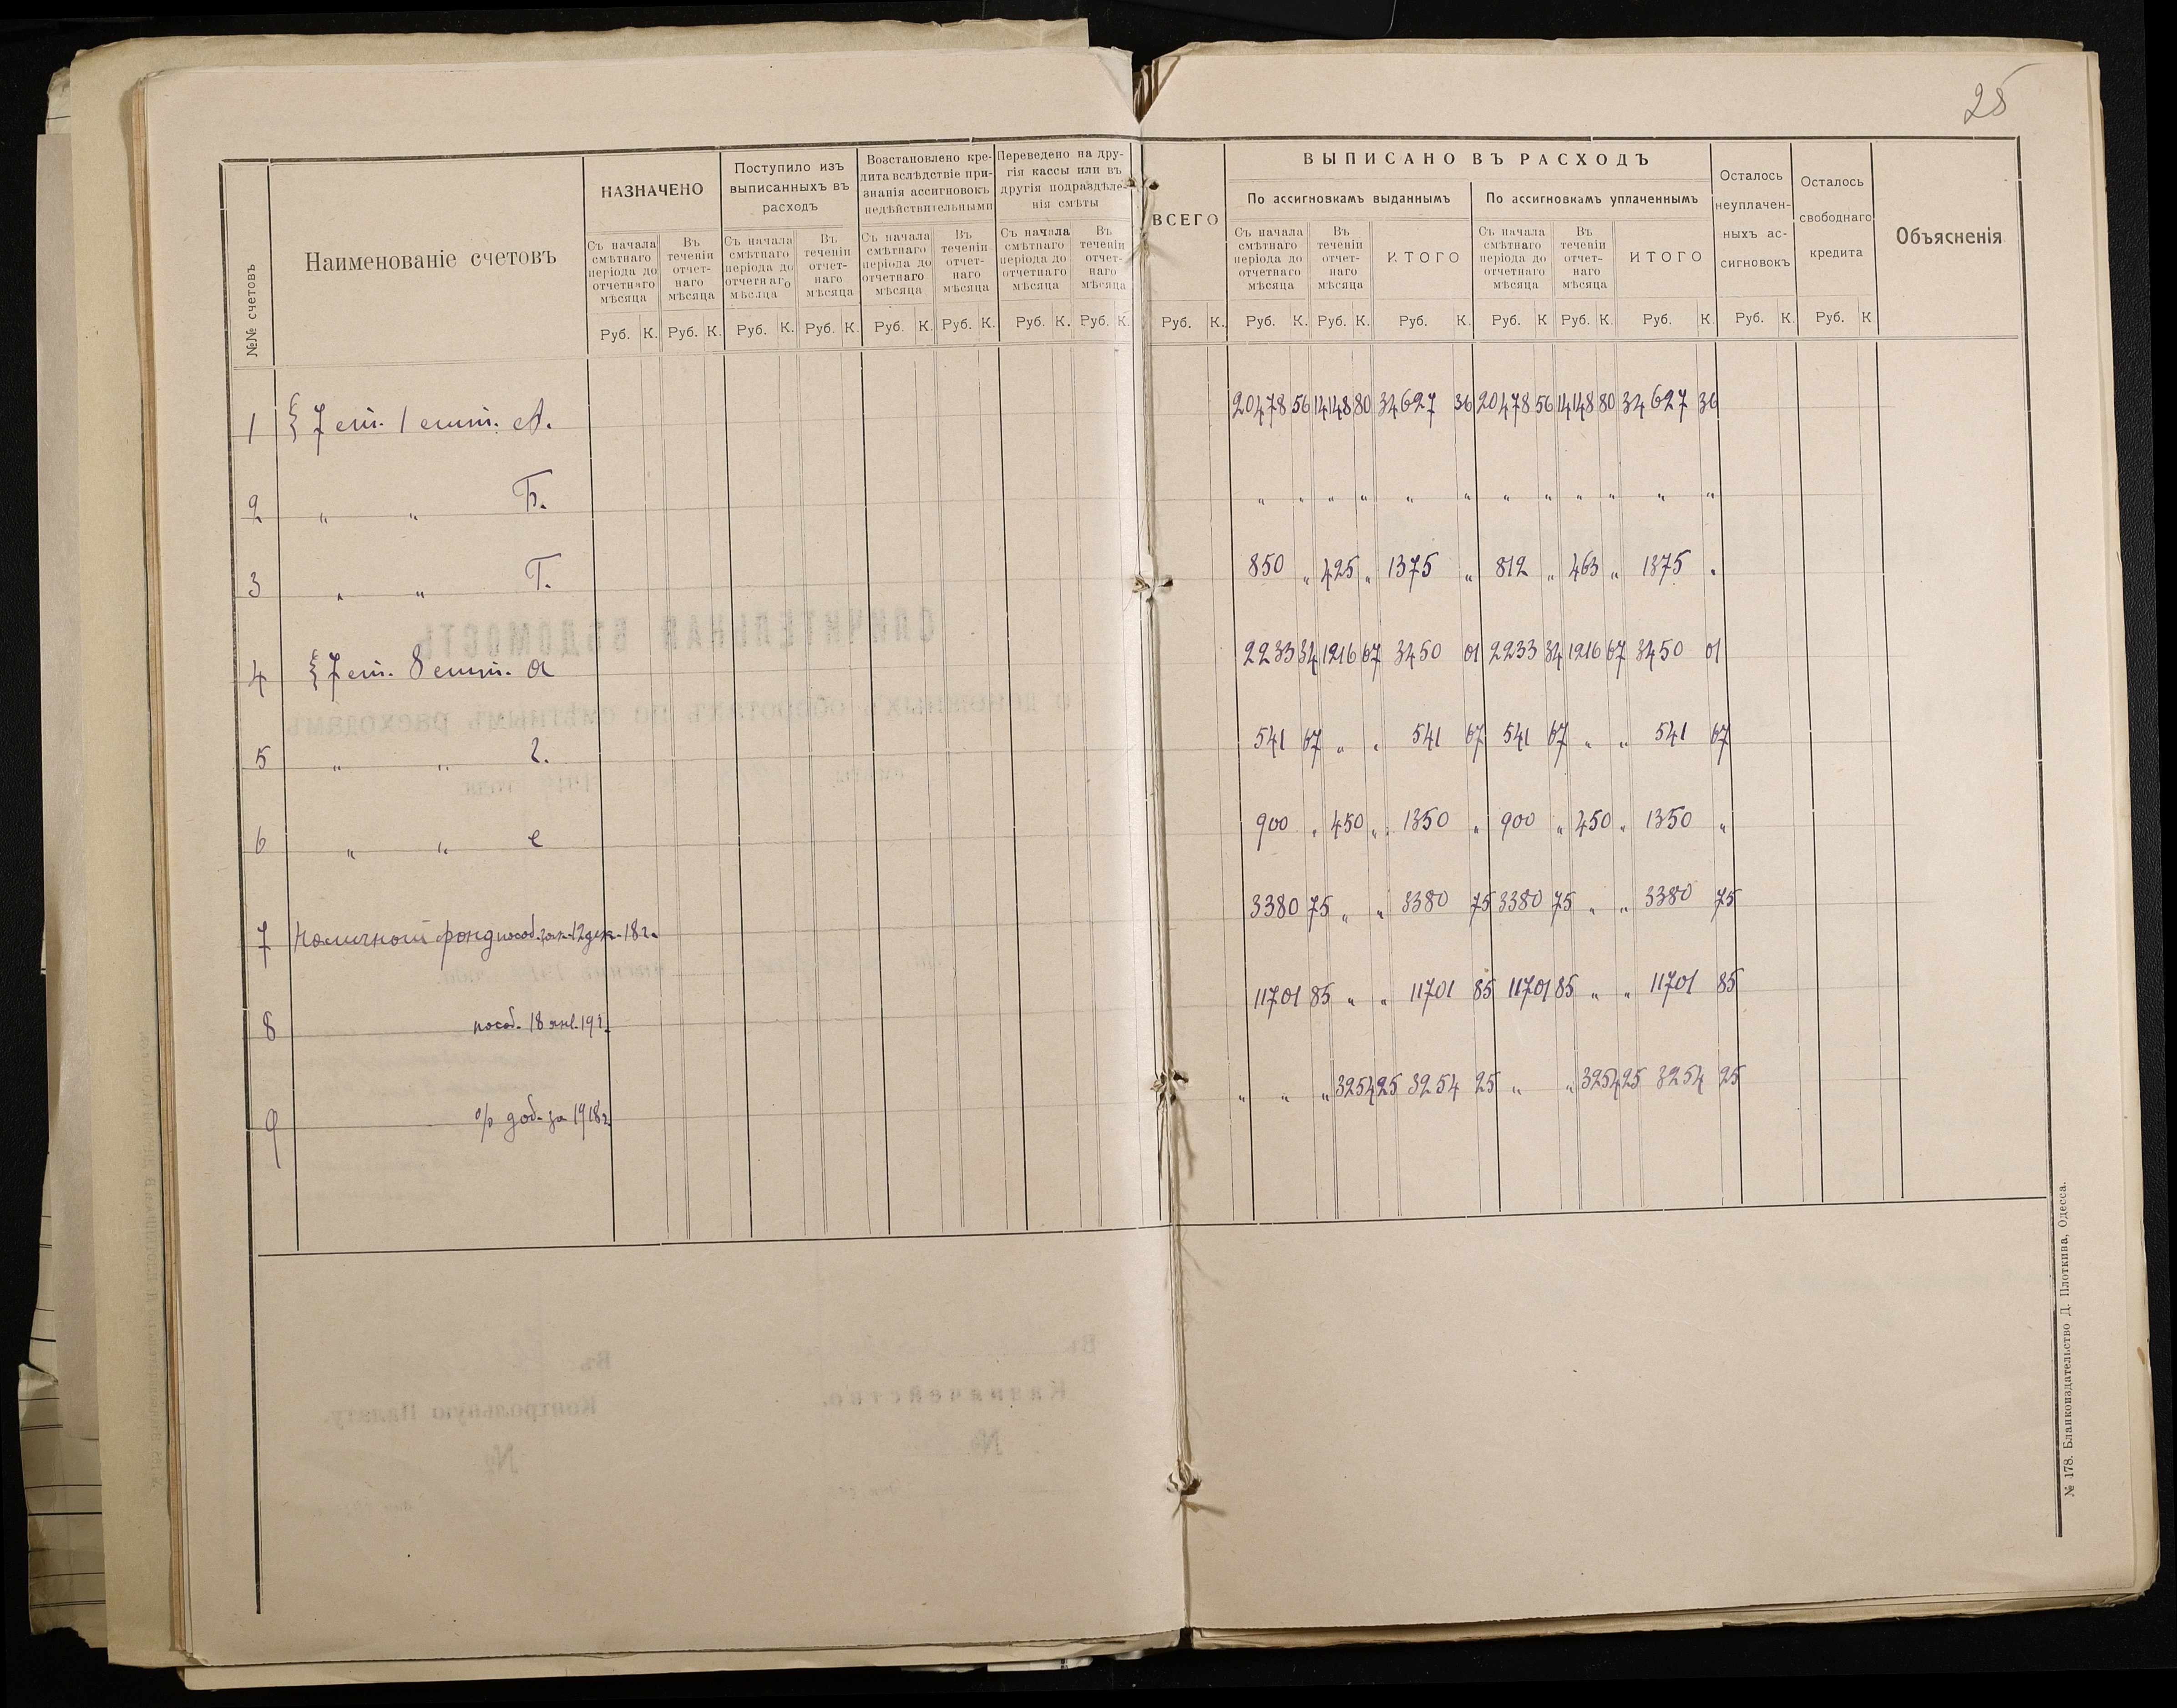 25
№№ счетовъ
Наименованіе счетовъ
НАЗНАЧЕНО
Поступило изъ
выписанныхъ въ
расходъ
Возстановлено кре-
дита вслѣдствіе при-
знанія ассигновокъ
недѣйствительными
Переведено на дру-
гія кассы или въ
другія подраздѣле-
нія смѣты
ВСЕГО
ВЫПИСАНО ВЪ РАСХОДЪ
По ассигновкамъ выданнымъ
По ассигновкамъ уплаченнымъ
Осталось
неуплачен-
ныхъ ас-
сигновокъ
Осталось
свободнаго
кредита
Объясненія
Съ начала
смѣтнаго
періода до
отчетнаго
мѣсяца
Въ
теченіи
отчет-
наго
мѣсяца
Съ начала
смѣтнаго
періода до
отчетнаго
мѣсяца
Въ
теченіи
отчет-
наго
мѣсяца
Съ начала
смѣтнаго
періода до
отчетнаго
мѣсяца
Въ
теченіи
отчет-
наго
мѣсяца
Съ начала
смѣтнаго
періода до
отчетнаго
мѣсяца
Въ
теченіи
отчет-
наго
мѣсяца
Съ начала
смѣтнаго
періода до
отчетнаго
мѣсяца
Въ
теченіи
отчет-
наго
мѣсяца
ИТОГО
Съ начала
смѣтнаго
періода до
отчетнаго
мѣсяца
Въ
теченіи
отчет-
наго
мѣсяца
ИТОГО
Руб. К. Руб. К. Руб. К. Руб. К. Руб. К. Руб. К. Руб. К. Руб. К. Руб. К. Руб. К. Руб. К. Руб. К. Руб. К Руб. К. Руб. К. Руб. К. Руб. К
1 § 7 ст. 1 стт. А. 20478 56 14148 80 34627 36 20478 56 14148 80 34627 36
2 " " Б. " " " " " " " " " " " "
3 " " Г. 850 " 425 " 1375 " 812 " 463 " 1375 "
4 § 7 ст. 8 стт. а 2233 34 1216 67 3450 01 2233 34 1216 67 3450 01
5 " " г. 541 67 " " 541 67 541 67 " " 541 67
6 " " е 900 " 450 " 1350 " 900 " 450 " 1350 "
7 фонд пособ. зак. 12 дек. 18 г. 3380 75 " " 3380 75 3380 75 " " 3380 75
8 пособ. 18 янв. 19 г. 11701 85 " " 11701 85 11701 85 " " 11701 85
9 % доб. за 1918 г. " " 3254 25 3254 25 " " 3254 25 3254 25
№ 178. Бланкоиздательство Д. Плоткина, Одесса.